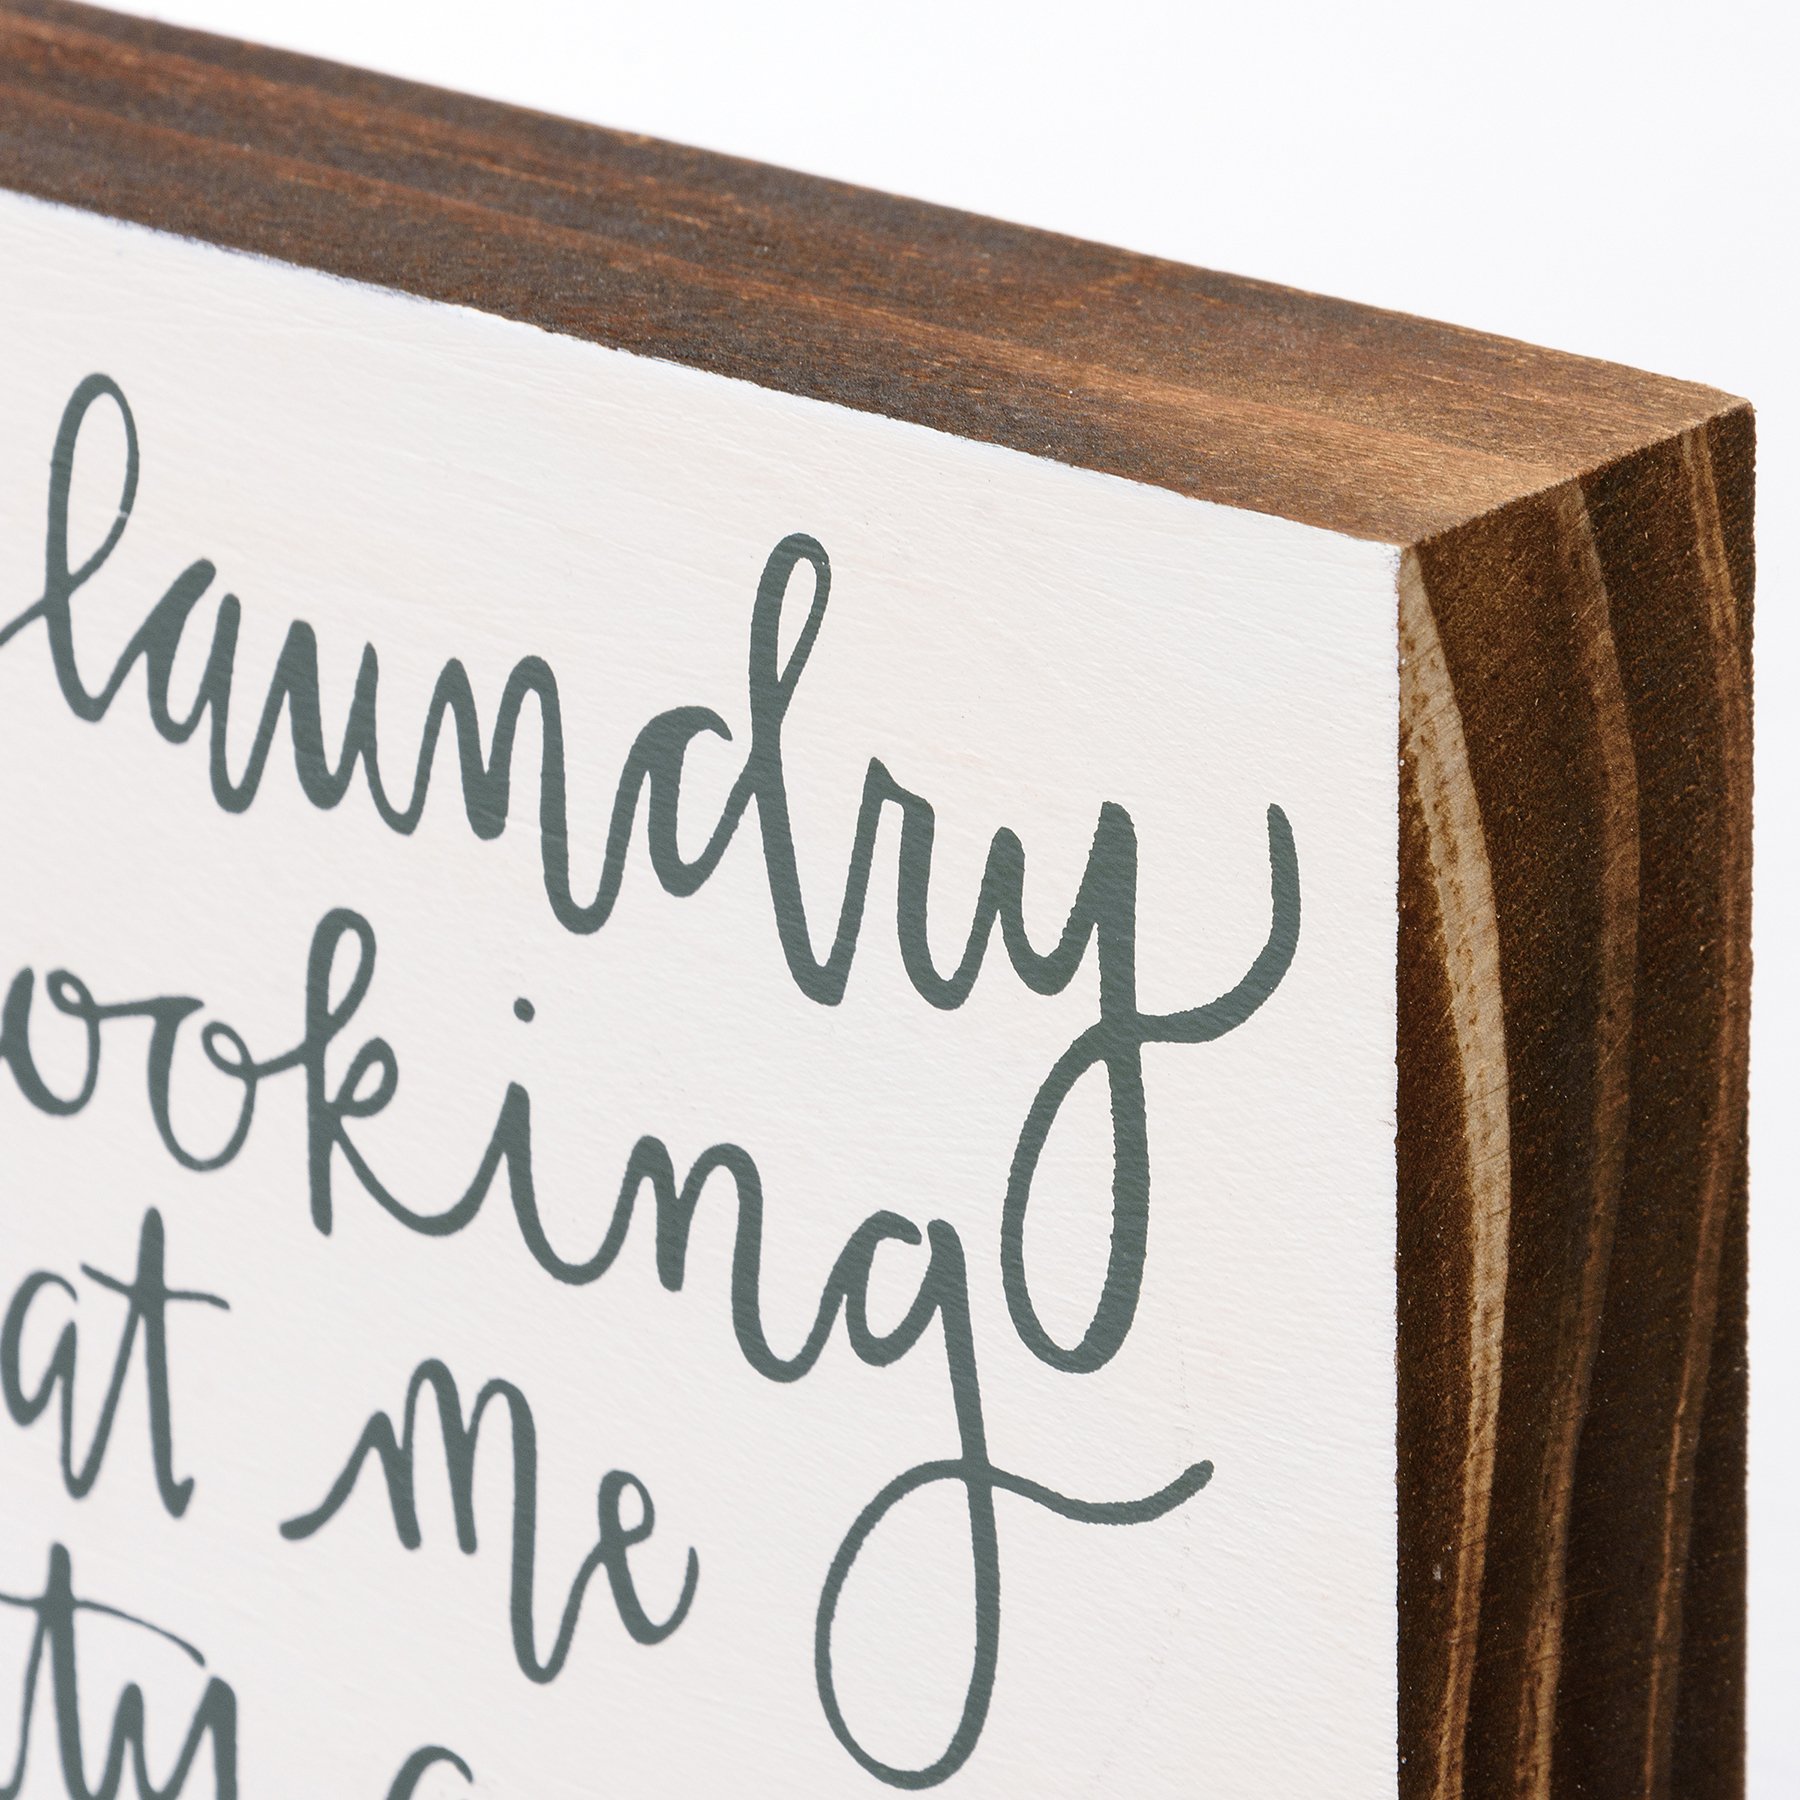 laundry
ooking
at me
ty